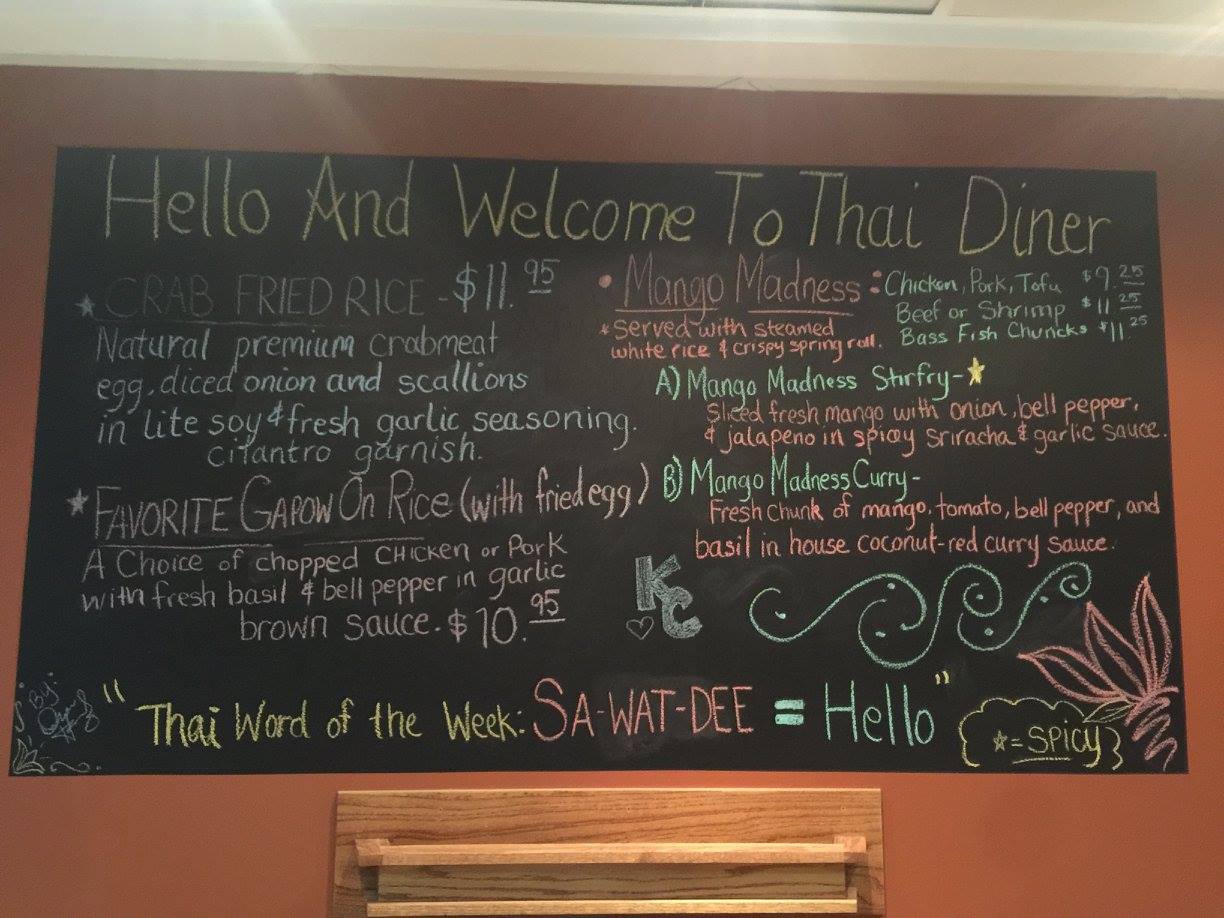 Hello And Welcome To Thai Diner
★ CRAB FRIED RICE - $11.95
Natural premium crabmeat
egg, diced onion and scallions
in lite soy & fresh garlic seasoning.
cilantro garnish.
★ FAVORITE GAPOW ON RICE (with fried egg)
A Choice of chopped CHICKEN or Pork
with fresh basil & bell pepper in garlic
brown sauce. $10.95
• Mango Madness :
*Served with steamed
white rice & crispy spring roll.
Chicken, Pork, Tofu $9.25
Beef or Shrimp $11.25
Bass Fish Chuncks $11.25
A) Mango Madness Stirfry - ★
Sliced fresh mango with onion, bell pepper,
& jalapeno in spicy Sriracha & garlic sauce.
B) Mango Madness Curry -
Fresh chunk of mango, tomato, bell pepper, and
basil in house coconut-red curry sauce.
KC
By:
"Thai Word of the Week: SA-WAT-DEE = Hello"
☆ = SPICY